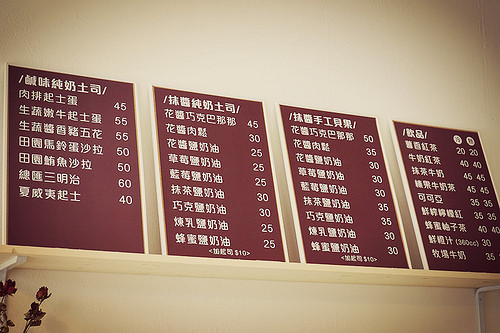 /鹹味純奶土司/
肉排起士蛋 45
生蔬嫩牛起士蛋 55
生蔬醬香豬五花 55
田園馬鈴蛋沙拉 50
田園鮪魚沙拉 50
總匯三明治 60
夏威夷起士 40
/抹醬純奶土司/
花醬巧克巴那那 45
花醬肉鬆 30
花醬鹽奶油 25
草莓鹽奶油 25
藍莓鹽奶油 25
抹茶鹽奶油 30
巧克鹽奶油 30
煉乳鹽奶油 25
蜂蜜鹽奶油 25
<加起司 $10>
/抹醬手工貝果/
花醬巧克巴那那 50
花醬肉鬆 35
花醬鹽奶油 30
草莓鹽奶油 30
藍莓鹽奶油 30
抹茶鹽奶油 35
巧克鹽奶油 35
煉乳鹽奶油 30
蜂蜜鹽奶油 30
<加起司 $10>
/飲品/
醇香紅茶 20 20
牛奶紅茶 40 40
抹茶牛奶 45 45
榛果牛奶茶 45 45
可可亞 35 35
鮮檸檸檬紅 35 35
蜂蜜柚子茶 40 40
鮮橙汁 (360cc) 30
牧場牛奶 35